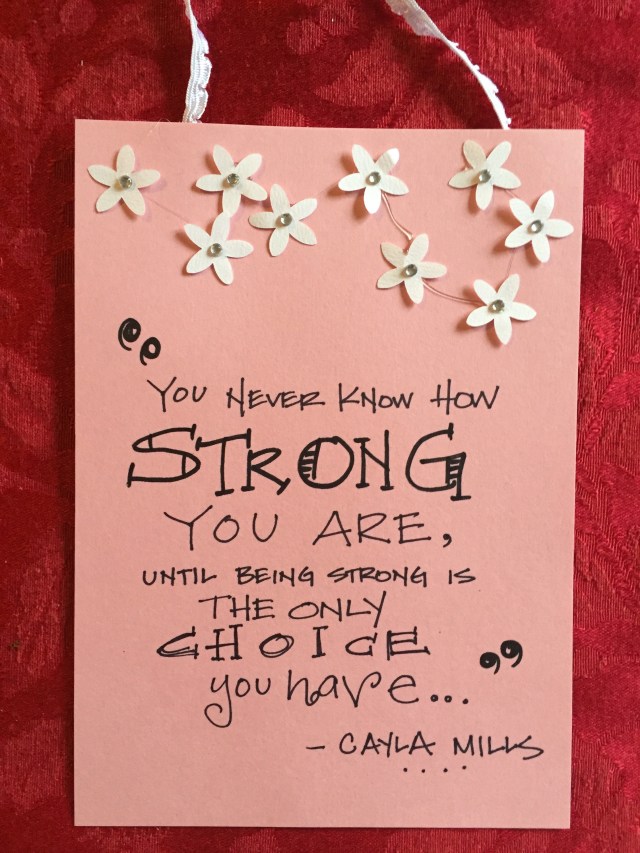 “You Never Know How
STRONG
YOU ARE,
UNTIL BEING STRONG IS
THE ONLY
CHOICE
you have...”
- CAYLA MILLS